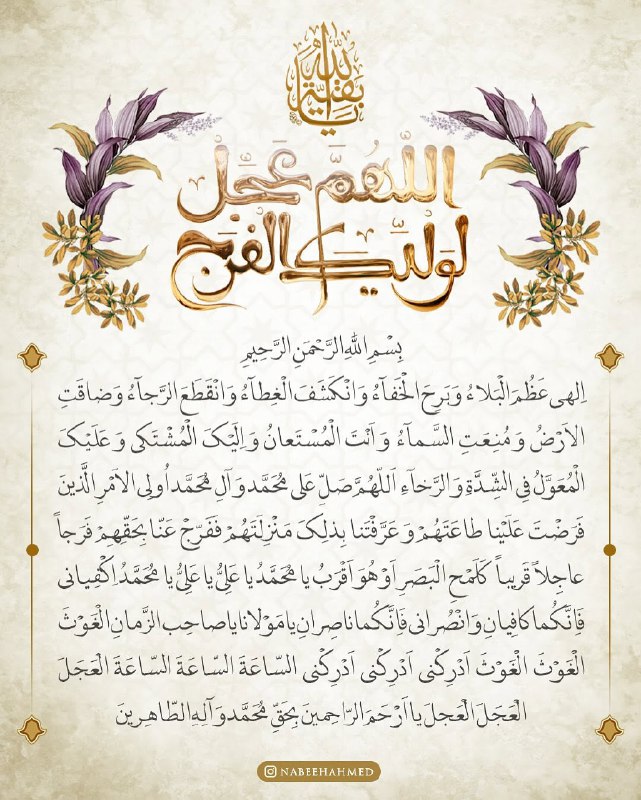 يا بقية الله
اللهم عجل
لوليك الفرج
بِسْمِ اللهِ الرَّحْمَنِ الرَّحِيمِ
اِلهى عَظُمَ الْبَلاءُ وَ بَرِحَ الْخَفآءُ وَ انْكَشَفَ الْغِطآءُ وَ انْقَطَعَ الرَّجآءُ وَ ضاقَتِ
الاَرْضُ وَ مُنِعَتِ السَّمآءُ وَ اَنْتَ الْمُسْتَعانُ وَ اِلَيْکَ الْمُشْتَکى وَ عَلَيْکَ
الْمُعَوَّلُ فِي الشِّدَّةِ وَ الرَّخآءِ اَللّهُمَّ صَلِّ عَلى مُحَمَّد وَ آلِ مُحَمَّد اُولِى الاَمْرِ الَّذينَ
فَرَضْتَ عَلَيْنا طاعَتَهُمْ وَ عَرَّفْتَنا بِذلِکَ مَنْزِلَتَهُمْ فَفَرِّجْ عَنّا بِحَقِّهِمْ فَرَجاً
عاجِلاً قَريباً کَلَمْحِ الْبَصَرِ اَوْ هُوَ اَقْرَبُ يا مُحَمَّدُ يا عَلِىُّ يا عَلِىُّ يا مُحَمَّدُ اِکْفِيانى
فَاِنَّکُما کافِيانِ وَ انْصُرانى فَاِنَّکُما ناصِرانِ يا مَوْلانا يا صاحِبَ الزَّمانِ الْغَوْثَ
الْغَوْثَ الْغَوْثَ اَدْرِکْنى اَدْرِکْنى اَدْرِکْنى السّاعَةَ السّاعَةَ السّاعَةَ الْعَجَلَ
الْعَجَلَ الْعَجَلَ يا اَرْحَمَ الرّاحِمينَ بِحَقِّ مُحَمَّد وَ آلِهِ الطّاهِرينَ
NABEEHAHMED